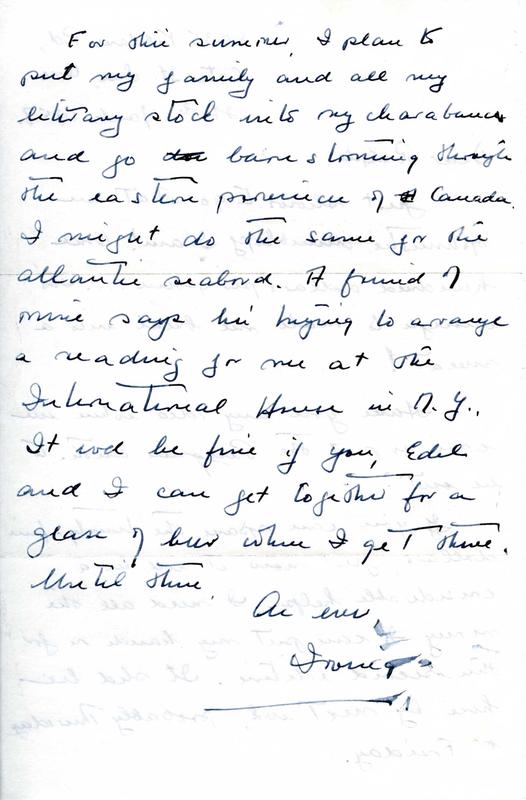 For this summer, I plan to
put my family and all my
literary stock into my charabanck
and go barnstorming through
the eastern province of Canada.
I might do the same for the
atlantic seabord. A friend of
mine says he's trying to arrange
a reading for me at the
International House in N.Y..
It wd be fine if you, Edel
and I can get together for a
glass of beer when I get there.
Until then
As ever,
Irving